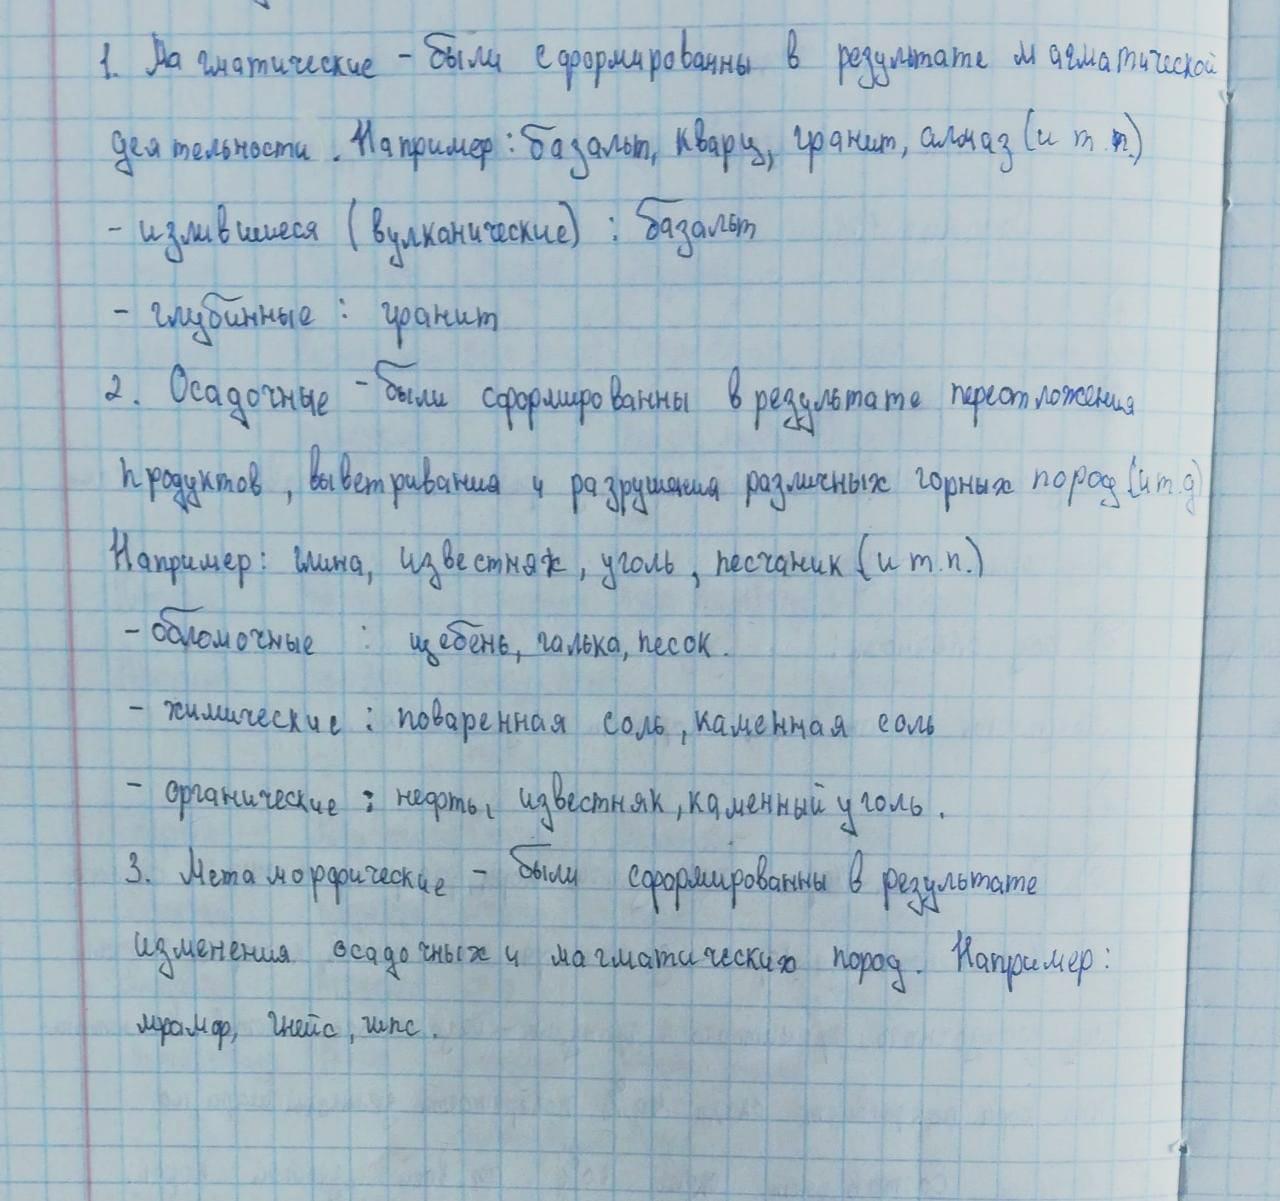 1. Магматические - были сформированны в результате магматической
деятельности. Например: базальт, кварц, гранит, алмаз (и т.п.)
- излившиеся (вулканические) : базальт
- глубинные : гранит
2. Осадочные - были сформированны в результате переотложения
продуктов, выветривания и разрушения различных горных пород (и т.д)
Например: глина, известняк, уголь, песчаник (и т.п.)
- обломочные : щебень, галька, песок.
- химические : поваренная соль, каменная соль
- органические : нефть, известняк, каменный уголь.
3. Метаморфические - были сформированны в результате
изменения осадочных и магматических пород. Например:
мрамор, гнейс, гипс.